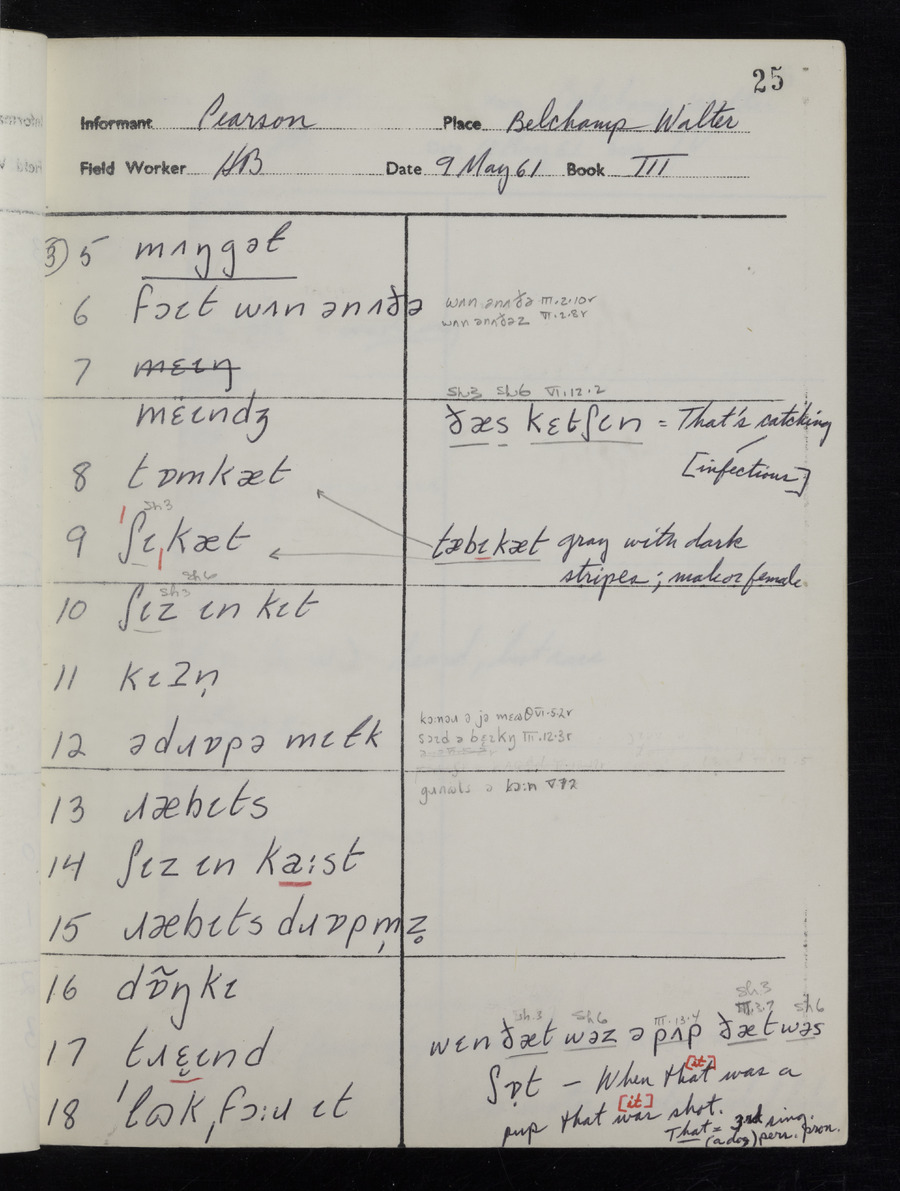 25
Informant Pearson Place Belchamp Walter
Field Worker HB Date 9 May 61 Book III
③ 5 mʌŋgət
6 fɔɪt wʌn ənʌðə
wʌn ənʌðə III.2.10r
wʌn ənʌðəz VI.2.8r
7 mɛɪŋ
mɛ̈ɪndʒ
sh3 sh6 VI.12.2
ðæs kɛtʃɪn = That's catching
[infectious]
8 tɒmkæt
sh3
9 ˈʃɪˌkæt
tæbɪkæt gray with dark
stripes; male or female
sh6
sh3
10 ʃɪz ɪn kɪt
11 kɪZn̩
12 ədɹɒpə mɪlk
kɔ:nəɹ ə jə mɛωθ VI.5.2r
13 ɹæbɪts
14 ʃɪz ɪn ka:st
15 ɹæbɪts dɹɒpm̩z̥
16 dɒ̃ŋkɪ
17 tɹɛ̣ɪnd
sh.3 sh6 III.13.4 sh.3 III.3.7 sh6
wɛn ðæt wəz ə pʌp ðæt wəs
ʃɒ̣t – When that [it] was a
pup that [it] was shot.
That = 3rd sing.
(a dog) pers. pron.
18 ˈlωkˌfɔ:ɹ ɪt